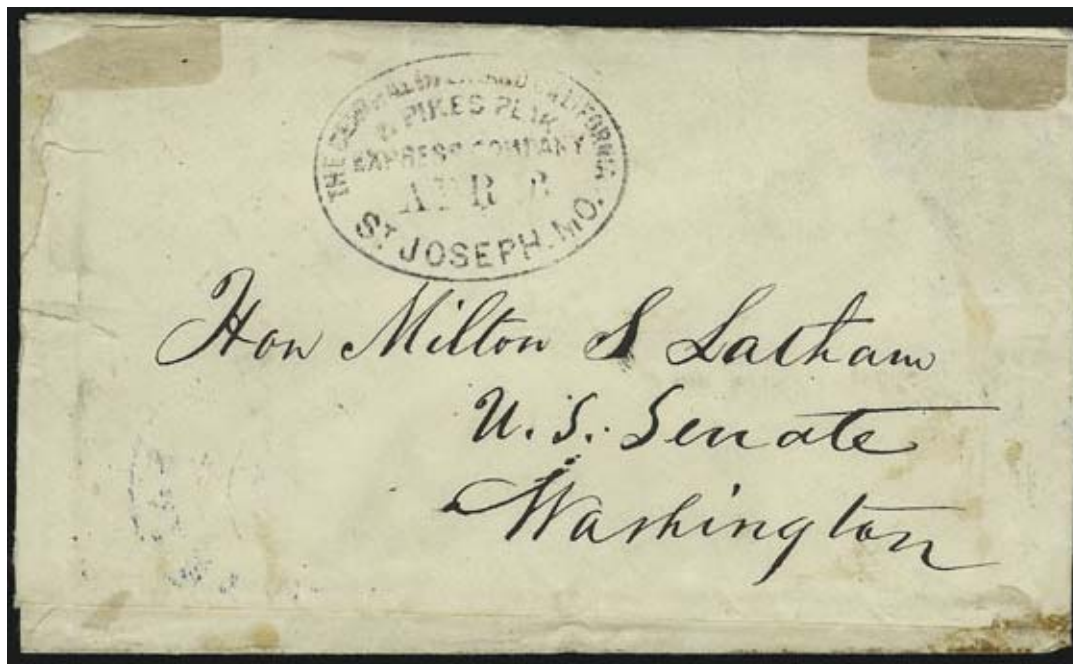 THE CENTRAL OVERLAND CALIFORNIA
& PIKES PEAK
EXPRESS COMPANY
APR
ST JOSEPH. MO.
Hon Milton S Latham
U.S. Senate
Washington